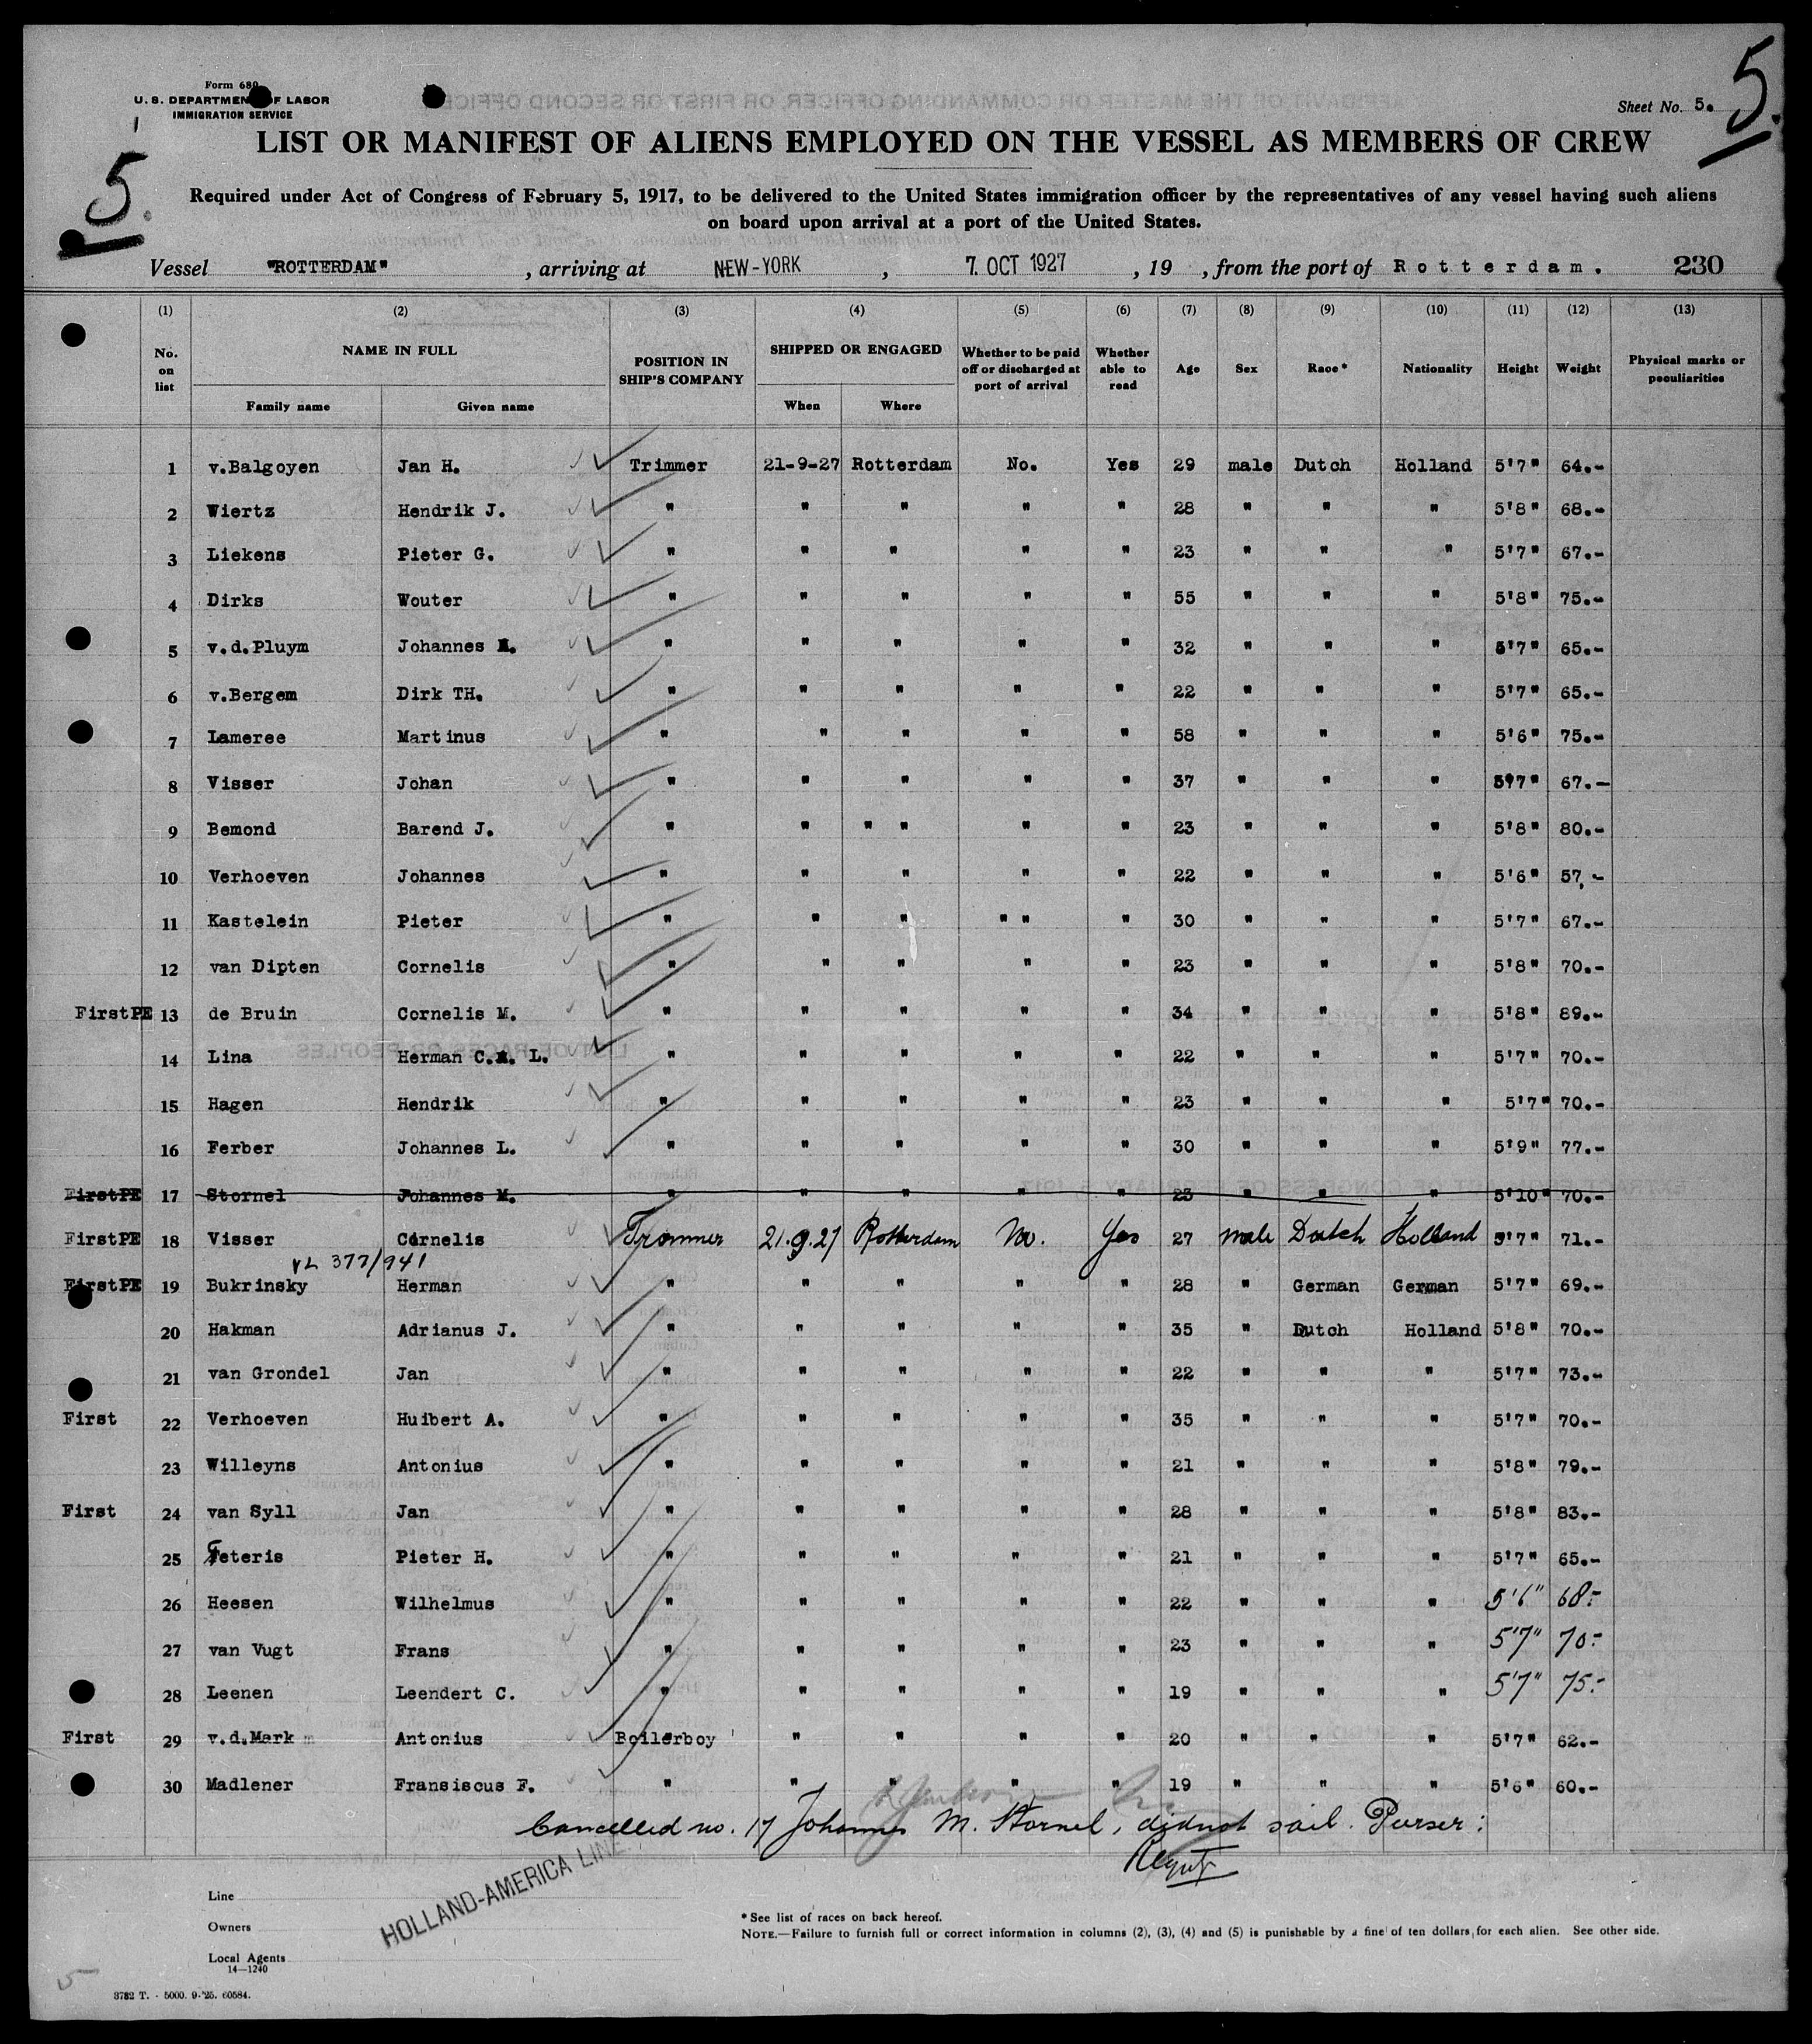 Form 689
U. S. DEPARTMENT OF LABOR
IMMIGRATION SERVICE
Sheet No. 5.
5.
5.
LIST OR MANIFEST OF ALIENS EMPLOYED ON THE VESSEL AS MEMBERS OF CREW
Required under Act of Congress of February 5, 1917, to be delivered to the United States immigration officer by the representatives of any vessel having such aliens
on board upon arrival at a port of the United States.
Vessel "ROTTERDAM" , arriving at NEW-YORK , 7. OCT 1927 , 19 , from the port of Rotterdam. 230
(1) (2) (3) (4) (5) (6) (7) (8) (9) (10) (11) (12) (13)
No. on list NAME IN FULL Family name Given name POSITION IN SHIP'S COMPANY SHIPPED OR ENGAGED When Where Whether to be paid off or discharged at port of arrival Whether able to read Age Sex Race* Nationality Height Weight Physical marks or peculiarities
1 v.Balgoyen Jan H. Trimmer 21-9-27 Rotterdam No. Yes 29 male Dutch Holland 5'7" 64.-
2 Wiertz Hendrik J. " " " " " 28 " " " 5'8" 68.-
3 Liekens Pieter G. " " " " " 23 " " " 5'7" 67.-
4 Dirks Wouter " " " " " 55 " " " 5'8" 75.-
5 v.d.Pluym Johannes " " " " " 32 " " " 5'7" 65.-
6 v.Bergem Dirk TH. " " " " " 22 " " " 5'7" 65.-
7 Lameree Martinus " " " " " 58 " " " 5'6" 75.-
8 Visser Johan " " " " " 37 " " " 5'7" 67.-
9 Bemond Barend J. " " " " " " 23 " " " 5'8" 80.-
10 Verhoeven Johannes " " " " " 22 " " " 5'6" 57,-
11 Kastelein Pieter " " " " " " 30 " " " 5'7" 67.-
12 van Dipten Cornelis " " " " " 23 " " " 5'8" 70.-
FirstPE 13 de Bruin Cornelis M. " " " " " 34 " " " 5'8" 89.-
14 Lina Herman C. L. " " " " " 22 " " " 5'7" 70.-
15 Hagen Hendrik " " " " " 23 " " " 5'7" 70.-
16 Ferber Johannes L. " " " " " 30 " " " 5'9" 77.-
FirstPE 17 Stornel Johannes M. " " " " " 23 " " " 5'10" 70.-
FirstPE 18 Visser Cornelis Trimmer 21.9.27 Rotterdam No. Yes 27 male Dutch Holland 5'7" 71.-
377/941
FirstPE 19 Bukrinsky Herman " " " " " 28 " German German 5'7" 69.-
20 Hakman Adrianus J. " " " " " 35 " Dutch Holland 5'8" 70.-
21 van Grondel Jan " " " " " 22 " " " 5'7" 73.-
First 22 Verhoeven Huibert A. " " " " " 35 " " " 5'7" 70.-
23 Willeyns Antonius " " " " " 21 " " " 5'8" 79.-
First 24 van Syll Jan " " " " " 28 " " " 5'8" 83.-
25 Feteris Pieter H. " " " " " 21 " " " 5'7" 65.-
26 Heesen Wilhelmus " " " " " 22 " " " 5'6" 68.-
27 van Vugt Frans " " " " " 23 " " " 5'7" 70.-
28 Leenen Leendert C. " " " " " 19 " " " 5'7" 75.-
First 29 v.d.Mark Antonius Boilerboy " " " " 20 " " " 5'7" 62.-
30 Madlener Fransiscus F. " " " " " 19 " " " 5'6" 60.-
Cancelled no. 17 Johannes M. Stornel, didnot sail. Purser:
Line
Owners
Local Agents
HOLLAND-AMERICA LINE
14—1240
*See list of races on back hereof.
NOTE.—Failure to furnish full or correct information in columns (2), (3), (4) and (5) is punishable by a fine of ten dollars for each alien. See other side.
5
3782 T. - 5000. 9-'25. 60584.